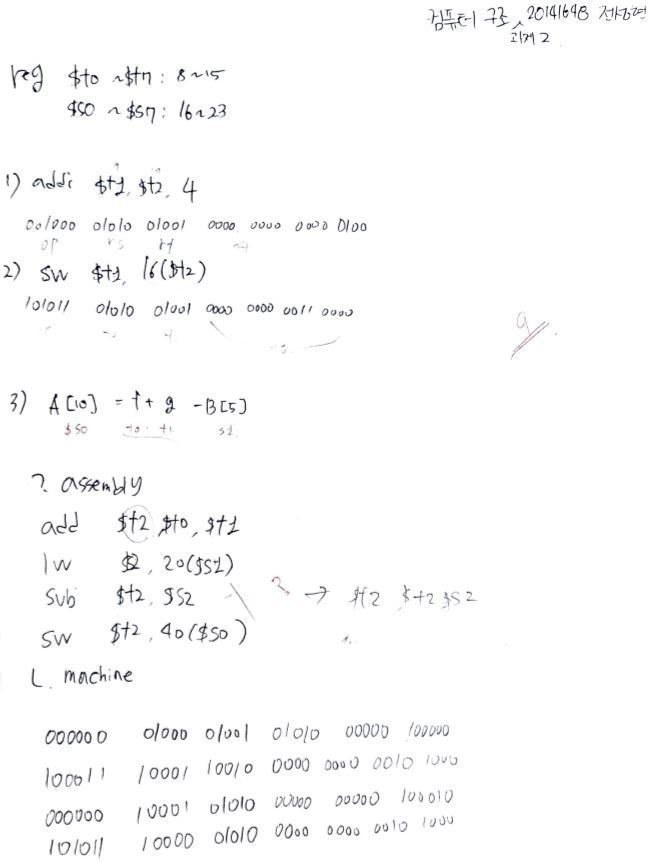 컴퓨터 구조 20141648
과제 2
reg $t0 ~ $t7 : 8~15
$s0 ~ $s7 : 16~23
1) addi $t1, $t2, 4
001000 01010 01001 0000 0000 0000 0100
op rs rt
2) sw $t1, 16($t2)
101011 01010 01001 0000 0000 0011 0000
9
3) A[10] = f + g - B[5]
$s0 t0 t1 s1
ㄱ. assembly
add $t2 $t0, $t1
lw $s2, 20($s1)
sub $t2, $s2 ? → $t2 $t2 $s2
sw $t2, 40($s0)
ㄴ. machine
000000 01000 01001 01010 00000 100000
100011 10001 10010 0000 0000 0010 1000
000000 10001 01010 00000 00000 100010
101011 10000 01010 0000 0000 0010 1000